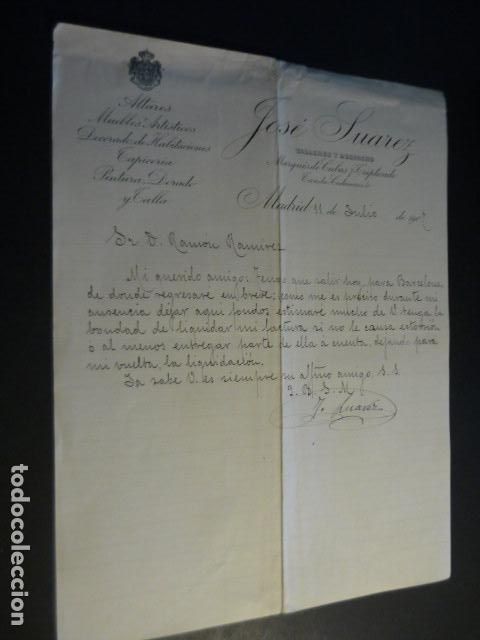 Altares
Muebles Artísticos
Decorado de Habitaciones
Tapicería
Pintura, Dorado
y Talla
José Suarez
TALLERES Y DESPACHO
Marqués de Cubas 7 Duplicado
Madrid 11 de Julio de 1907
Sr. D. Ramón Ramirez
Mi querido amigo: Tengo que salir hoy para Barcelona
de donde regresare en breve; como me es preciso durante mi
ausencia dejar aqui fondos estimare mucho de V. tenga la
bondad de liquidar mi factura si no le causa extorsion
o al menos entregar parte de ella a cuenta, dejando para
mi vuelta la liquidación.
Ya sabe V. es siempre su affmo amigo, S. S.
Q. B. S. M.
J. Suarez
todocoleccion
TODOCOLECCION.NET